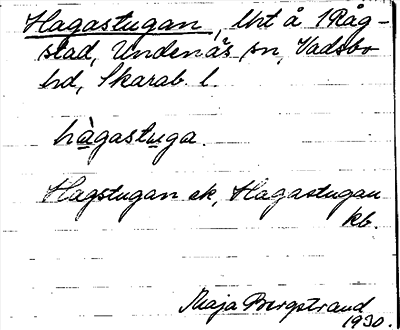 Hagastugan, lht å 1 Råg-
stad, Undenäs sn, Vadsbo
hd, Skarab. l.
hàgastuga.
Hagstugan ek, Hagastugan
kb.
Maja Bergstrand
1930.